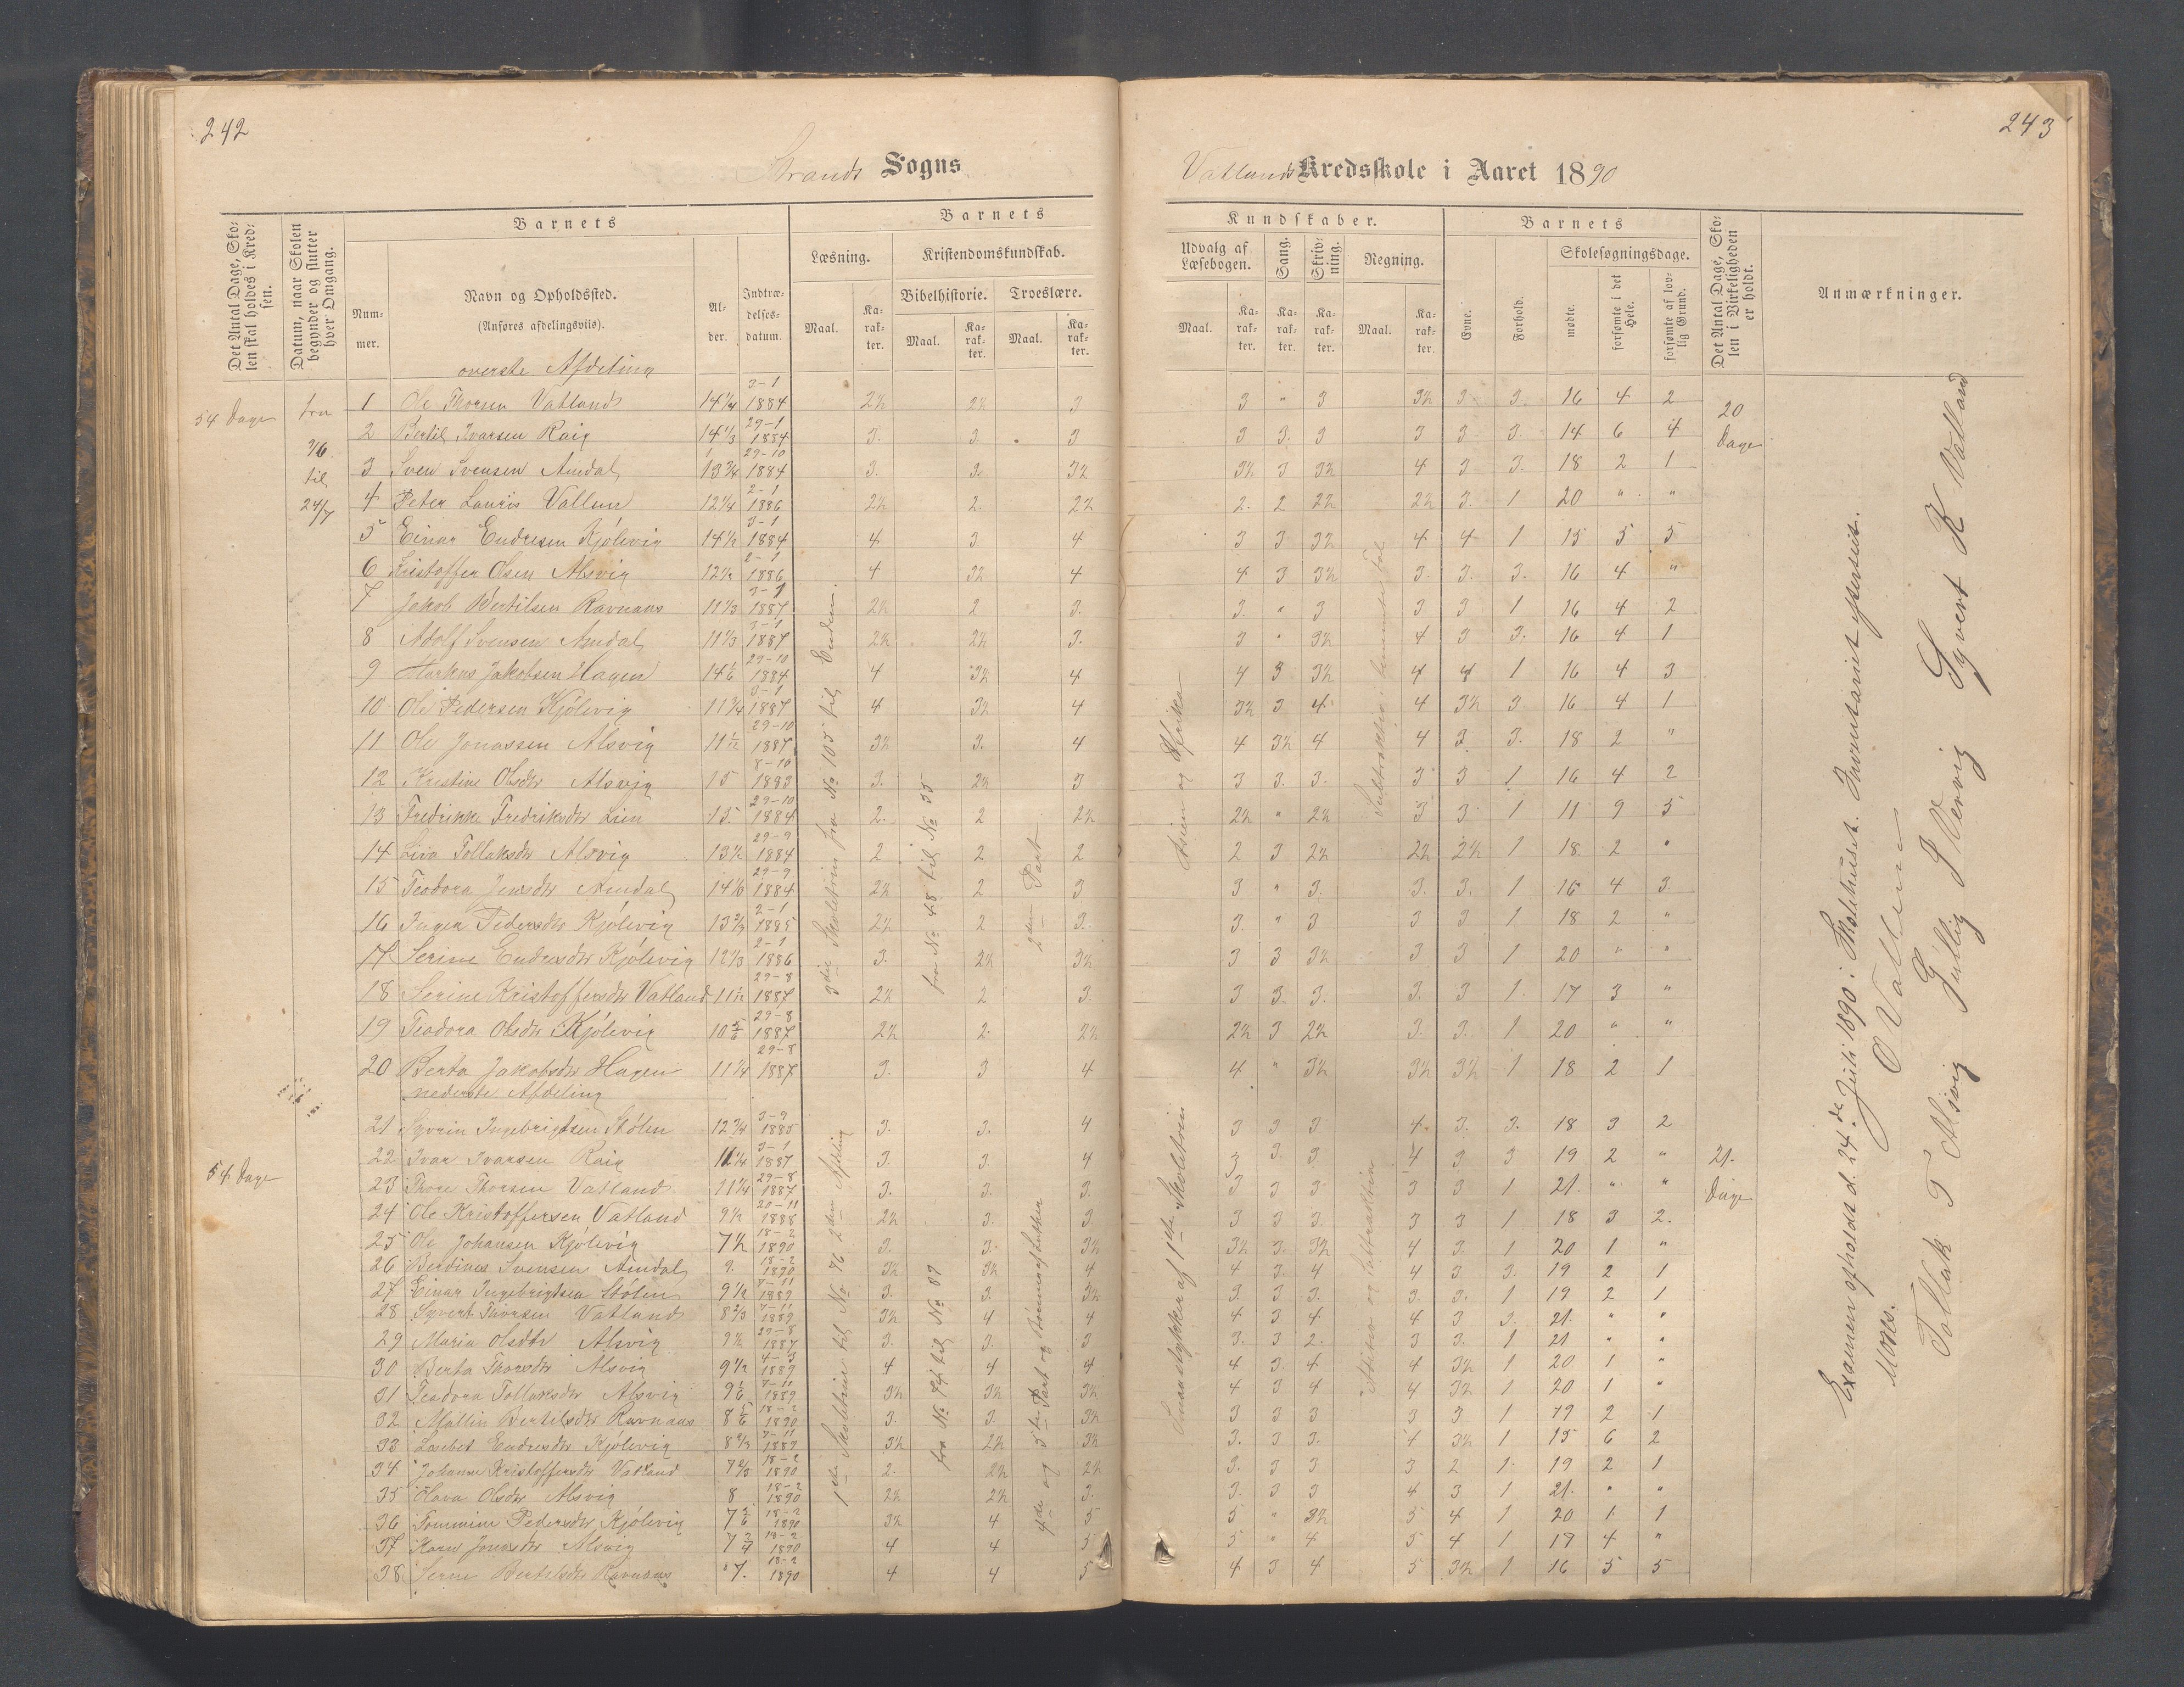 242
243
Strands Sogns
Vatlands Kredsskole i Aaret 1890
Det Antal Dage, Skolen skal holdes i Kredsen.
Datum, naar Skolen begynder og slutter hver Omgang.
Barnets
Nummer.
Navn og Opholdssted.
(Anføres afdelingsviis).
Alder.
Indtrædelsesdatum.
Barnets
Læsning.
Kristendomskundskab.
Bibelhistorie.
Troeslære.
Maal.
Karakter.
Maal.
Karakter.
Maal.
Karakter.
Kundskaber.
Udvalg af Læsebogen.
Sang.
Skrivning.
Regning.
Maal.
Karakter.
Karakter.
Karakter.
Maal.
Karakter.
Barnets
Evne.
Forhold.
Skolesøgningsdage.
mødte.
forsømte i det Hele.
forsømte af lovlig Grund.
Det Antal Dage, Skolen i Virkeligheden er holdt.
Anmærkninger.
overste Afdeling
54 Dage fra
til
24/7
1 Ole Thorsen Vatland 14 1/4 3-1 1884 2½ 2½ 3 3 " 3 3½ 3 3. 16 4 2 20 Dage
2 Bertil Ivarsen Raig 14 1/3 29-1 1884 3. 3. 3 3 3. 3 3 3 3. 14 6 4
3 Sven Svensen Amdal 13 3/4 29-10 1884 3. 3. 3½ 3½ 3 3½ 4 3 3. 18 2 1
4 Peter Lauris Vallem 12 1/4 2-1 1886 2½ 2. 2½ 2. 2 2½ 2½ 3. 1 20 " "
5 Einar Endresen Kjølevig 14 1/2 3-1 1884 4 3 4 3 3 3½ 4 4 1 15 5 5
6 Kristoffer Olsen Alsvig 12 1/2 2-1 1886 4 3½ 4 4 3 3½ 3. 3. 3. 16 4 "
7 Jakob Bertilsen Ravnaas 11 1/3 3-1 1887 2½ 2 3. 3. " 3 3 3 1 16 4 2
8 Adolf Svensen Amdal 11 1/3 3-1 1887 2½ 2½ 3. 3 " 3½ 4 3 3. 16 4 1
9 Markus Jakobsen Hagen 14 1/6 29-10 1884 4 3½ 4 4 3 3½ 4 4 1 16 4 3
10 Ole Pedersen Kjølevig 11 3/4 3-1 1887 4 3½ 4 3½ 3 4 4 3½ 3. 16 4 1
11 Ole Jonassen Alsvig 11 1/12 29-10 1887 3½ 3. 4 4 3½ 4 4 3 3. 18 2 "
12 Kristine Olsdtr Alsvig 15 8-10 1883 3. 2½ 3 3 3. 3. 3 3 1 16 4 2
13 Fredrikke Fredriksdtr Lien 15. 29-10 1884 2. 2 2½ 2½ " 2½ 3 3 1 11 9 5
14 Lina Tollaksdtr Alsvig 13 1/2 29-9 1884 2 2 2 2 3 2½ 2½ 2½ 1 18 2 "
15 Teodora Jensdtr Amdal 14 1/6 29-9 1884 2½ 2 3 3 " 3. 3. 3. 1 16 4 3
16 Inger Pedersdtr Kjølevig 13 2/3 2-1 1885 2½ 2 3. 3. " 3 3 3 1 18 2 "
17 Serine Endresdtr Kjølevig 12 1/3 2-1 1886 3. 2½ 3½ 3 3 3½ 3 3 1 20 " "
18 Serine Kristoffersdtr Vatland 11 1/2 29-8 1887 2½ 2 3. 3 3. 3. 3. 3 1. 17 3 "
19 Teodora Olsdtr Kjølevig 10 5/6 29-8 1887 2½ 2. 2½ 2½ 3 2½ 3. 3. 1 20 " "
20 Berta Jakobsdtr Hagen 11 1/4 29-8 1887 3. 3 4 4 " 3½ 3½ 3½ 1 18 2 1
nederste Afdeling
21 Syvrin Ingebrigtsen Stølen 12 3/4 3-9 1885 3. 3. 4 3 3 3 4. 3. 3. 18 3 2
54 Dage
22 Ivar Ivarsen Raig 11 1/4 3-1 1887 3. 3. 4 3 3. 3 4 3 3 19 2 " 21. Dage
23 Thore Thorsen Vatland 11 1/4 29-8 1887 3. 3. 3. 3 3 3 3 3 1 21. " "
24 Ole Kristoffersen Vatland 9 1/2 20-11 1888 2½ 3. 3. 3 3 3. 3 3 1 18 3 2.
25 Ole Johansen Kjølevig 7 1/2 18-2 1890 3. 3. 3½ 3½ 3. 3½ 4 3. 1 20 1 "
26 Berdines Svensen Amdal 9. 18-2 1890 3½ 3½ 4 4 3. 4 4 3 3. 19 2 1
27 Einar Ingebrigtsen Stølen 9 1/2 7-11 1889 3. 3. 3½ 3 3 3. 3. 3. 1 19 2 1
28 Syvert Thorsen Vatland 8 2/3 7-11 1889 3½ 4 4 4 3 4 4 3 3. 21. " "
29 Maria Olsdtr Alsvig 9 1/2 29-8 1887 3. 3. 3 3. 3 2. 3 3. 1 21 " "
30 Berta Thorsdtr Alsvig 9 1/2 4-3 1889 4 4 4 4 3. 4 4 3½ 1 20 1 "
31 Teodora Tollaksdtr Alsvig 9 1/6 7-11 1889 3½ 3½ 3½ 4 3 4 4 3½ 1 20 1 "
32 Mallin Bertilsdtr Ravnaas 8 5/6 18-2 1890 3. 3. 3½ 3 3 3 3 3 1 19 2 1
33 Lovbet Endresdtr Kjølevig 8 2/3 7-11 1889 3½ 2½ 3½ 3. 3 3. 4 3½ 1 15 6 2
34 Johanne Kristoffersdtr Vatland 7 2/3 18-2 1890 2. 2½ 2½ 3. 3 3 3 2 1. 19 2 1
35 Olava Olsdtr Alsvig 8 18-2 1890 2½ 2½ 3. 3. 3 3 4 3 1 21. " "
36 Tommine Pedersdtr Kjølevig 7 5/6 18-2 1890 3½ 4 5 5 " 3½ 5 4 1 20 1 1
37 Karen Jonasdtr Alsvig 7 3/4 18-2 1890 4 4 5 5 " 4 5 4 1 17 4 "
38 Serine Bertilsdtr Ravnaas 7. 18-2 1890 4 4 5 4 3 4 5 3½ 1 16 5 5
3die Skoletrin fra No 105 til Enden.
fra No 48 til No 55
2den Part
Asien og Afrika
Subtraktion i benævnte Tal
1ste Skoletrin til No 76 2den Afdeling
fra No 74 til No 87
4de og 5te Part og Bønnen af Luther
Smaastykker af 1ste Skoletrin
Addition og Subtraktion
Examen afholdt d. 24de Juli 1890 i Skolehuset. Inventariet efterseet.
O Vallem
Mons.
Tollak T Alsvig Gullig S Nervig Syvert K Vatland